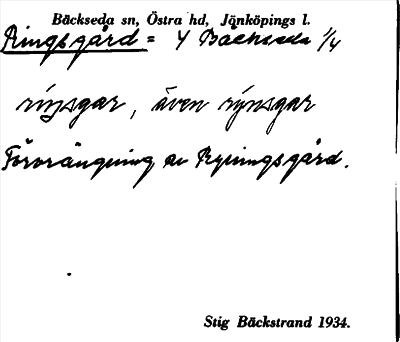 Bäckseda sn, Östra hd, Jönköpings l.
Ringsgård = Y Bäckseda 1/4
ringsgar, även rynsgar
Förvrängning av Ryningsgård.
Stig Bäckstrand 1934.